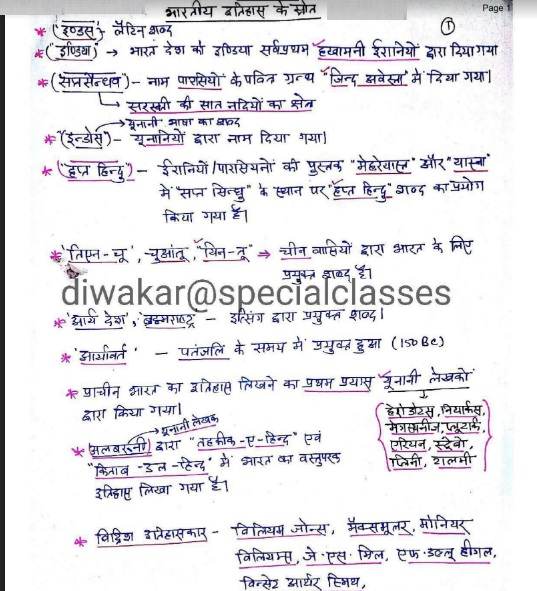 Page 1
भारतीय इतिहास के स्रोत
①
* ("इण्डस") लैटिन शब्द
* ("इण्डिया") → भारत देश को इण्डिया सर्वप्रथम हखामनी ईरानियों द्वारा दिया गया
* (सप्तसैन्धव) - नाम पारसियों के पवित्र ग्रन्थ "जिन्द अवेस्ता" में दिया गया।
सरस्वती की सात नदियों का क्षेत्र
→ यूनानी भाषा का शब्द
* (इन्डोस) - यूनानियों द्वारा नाम दिया गया।
* ("हप्त हिन्दु") - ईरानियों/पारसियनों की पुस्तक "मेहरेयास्त" और "यास्ना"
में "सप्त सिन्धु" के स्थान पर "हप्त हिन्दु" शब्द का प्रयोग
किया गया है।
* 'तिएन-चू', -चुआंतू, "यिन-तू" → चीन वासियों द्वारा भारत के लिए
प्रयुक्त शब्द है।
diwakar@specialclasses
* 'आर्य देश', 'ब्रह्मराष्ट्र' - इत्सिंग द्वारा प्रयुक्त शब्द।
* 'आर्यावर्त' - पतंजलि के समय में प्रयुक्त हुआ (150 BC)
* प्राचीन भारत का इतिहास लिखने का प्रथम प्रयास यूनानी लेखकों
द्वारा किया गया।
(हेरोडोटस, नियार्कस,
मेगस्थनीज, प्लूटार्क,
एरियन, स्ट्रेबो,
प्लिनी, टालमी)
→ यूनानी लेखक
* अलबरूनी द्वारा "तहकीक-ए-हिन्द" एवं
"किताब-उल-हिन्द" में भारत का वस्तुपरक
इतिहास लिखा गया है।
* ब्रिटिश इतिहासकार - विलियम जोन्स, मैक्समूलर, मोनियर
विलियम्स, जे. एस. मिल, एफ. डब्लू हीगल,
विन्सेट आर्थर स्मिथ,